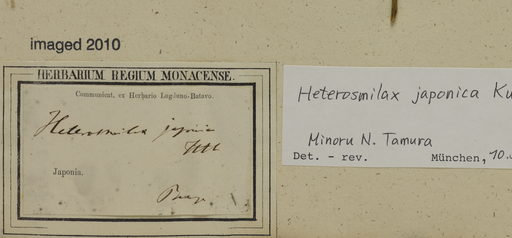 imaged 2010
HERBARIUM REGIUM MONACENSE.
Communicat. ex Herbario Lugduno-Batavo.
Heterosmilax japonica
Japonia.
Heterosmilax japonica Ku
Minoru N. Tamura
Det. - rev. München, 10.